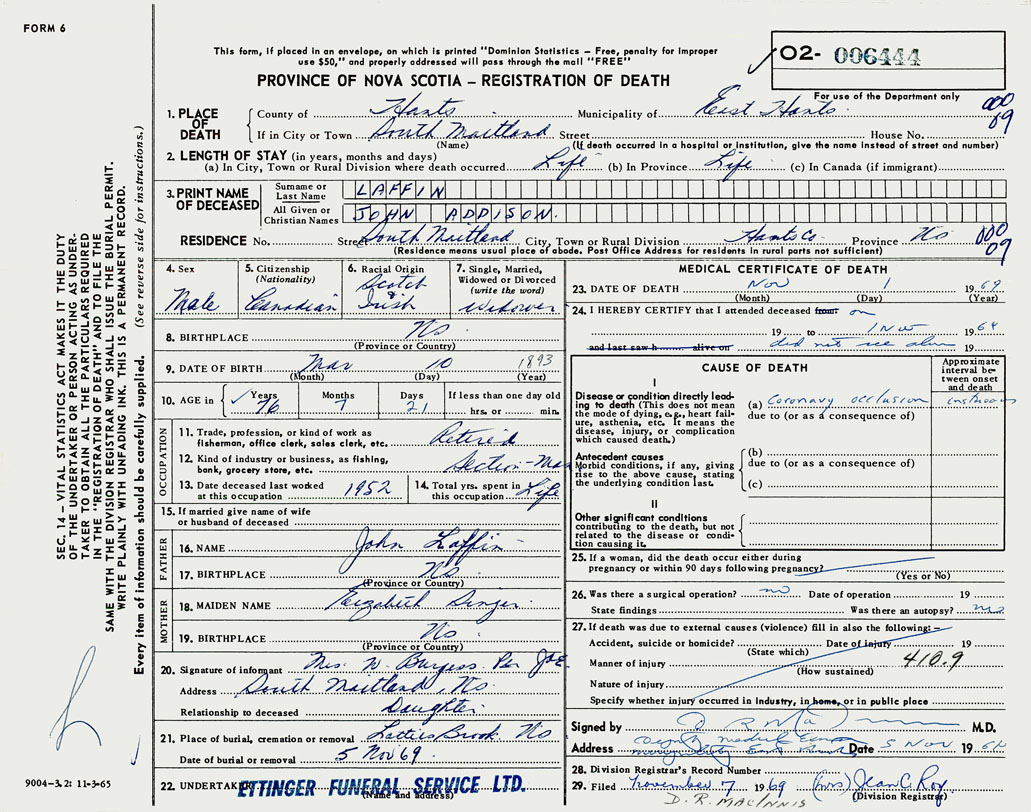 FORM 6
This form, if placed in an envelope, on which is printed "Dominion Statistics – Free, penalty for improper
use $50," and properly addressed will pass through the mail "FREE"
O2- 006444
For use of the Department only
PROVINCE OF NOVA SCOTIA – REGISTRATION OF DEATH
1. PLACE OF DEATH
County of Hants Municipality of East Hants
000
09
If in City or Town South Maitland Street House No.
(Name) (If death occurred in a hospital or institution, give the name instead of street and number)
2. LENGTH OF STAY (in years, months and days)
(a) In City, Town or Rural Division where death occurred Life (b) In Province Life (c) In Canada (if immigrant)
3. PRINT NAME OF DECEASED
Surname or Last Name LAFFIN
All Given or Christian Names JOHN ADDISON.
RESIDENCE No. Street South Maitland City, Town or Rural Division Hants Co Province NS
000
09
(Residence means usual place of abode. Post Office Address for residents in rural parts not sufficient)
4. Sex
Male
5. Citizenship
(Nationality)
Canadian
6. Racial Origin
Scotch
Irish
7. Single, Married,
Widowed or Divorced
(write the word)
Widower
8. BIRTHPLACE NS
(Province or Country)
9. DATE OF BIRTH Mar 10 1893
(Month) (Day) (Year)
10. AGE in
Years Months Days If less than one day old
76 7 21 hrs. or min.
OCCUPATION
11. Trade, profession, or kind of work as
fisherman, office clerk, sales clerk, etc. Retired
12. Kind of industry or business, as fishing,
bank, grocery store, etc. Section-Man
13. Date deceased last worked
at this occupation 1952
14. Total yrs. spent in
this occupation Life
15. If married give name of wife
or husband of deceased
FATHER
16. NAME John Laffin
17. BIRTHPLACE NS
(Province or Country)
MOTHER
18. MAIDEN NAME Elizabeth
19. BIRTHPLACE NS
(Province or Country)
20. Signature of informant Mrs. W. Burgess Per
Address South Maitland, NS.
Relationship to deceased Daughter
21. Place of burial, cremation or removal Latties Brook NS
Date of burial or removal 5 Nov 69
22. UNDERTAKER ETTINGER FUNERAL SERVICE LTD.
(Name and address)
MEDICAL CERTIFICATE OF DEATH
23. DATE OF DEATH Nov 1 1969
(Month) (Day) (Year)
24. I HEREBY CERTIFY that I attended deceased from: on
19 to 1 Nov 1969
and last saw h alive on did not see alive 19
CAUSE OF DEATH
Approximate
interval be-
tween onset
and death
I
Disease or condition directly lead-
ing to death (This does not mean
the mode of dying, e.g., heart fail-
ure, asthenia, etc. It means the
disease, injury, or complication
which caused death.)
(a) Coronary occlusion
due to (or as a consequence of)
Antecedent causes
Morbid conditions, if any, giving
rise to the above cause, stating
the underlying condition last.
(b)
due to (or as a consequence of)
(c)
II
Other significant conditions
contributing to the death, but not
related to the disease or condi-
tion causing it.
25. If a woman, did the death occur either during
pregnancy or within 90 days following pregnancy?
(Yes or No)
26. Was there a surgical operation? no Date of operation 19
State findings Was there an autopsy? no
27. If death was due to external causes (violence) fill in also the following:–
Accident, suicide or homicide? Date of injury 19
(State which)
Manner of injury 410.9
(How sustained)
Nature of injury
Specify whether injury occurred in industry, in home, or in public place
Signed by M.D.
Address Date 5 Nov 1969
28. Division Registrar's Record Number
29. Filed November 7 1969 (Mrs) Jean C Roy
(Division Registrar)
D. R. MACINNIS
SEC. 14 – VITAL STATISTICS ACT MAKES IT THE DUTY
OF THE UNDERTAKER OR PERSON ACTING AS UNDER-
TAKER TO OBTAIN ALL THE PARTICULARS REQUIRED
IN THE "REGISTRATION OF DEATH" AND TO FILE THE
SAME WITH THE DIVISION REGISTRAR WHO SHALL ISSUE THE BURIAL PERMIT.
WRITE PLAINLY WITH UNFADING INK. THIS IS A PERMANENT RECORD.
Every item of information should be carefully supplied. (See reverse side for instructions.)
9004-3.2: 11-3-65